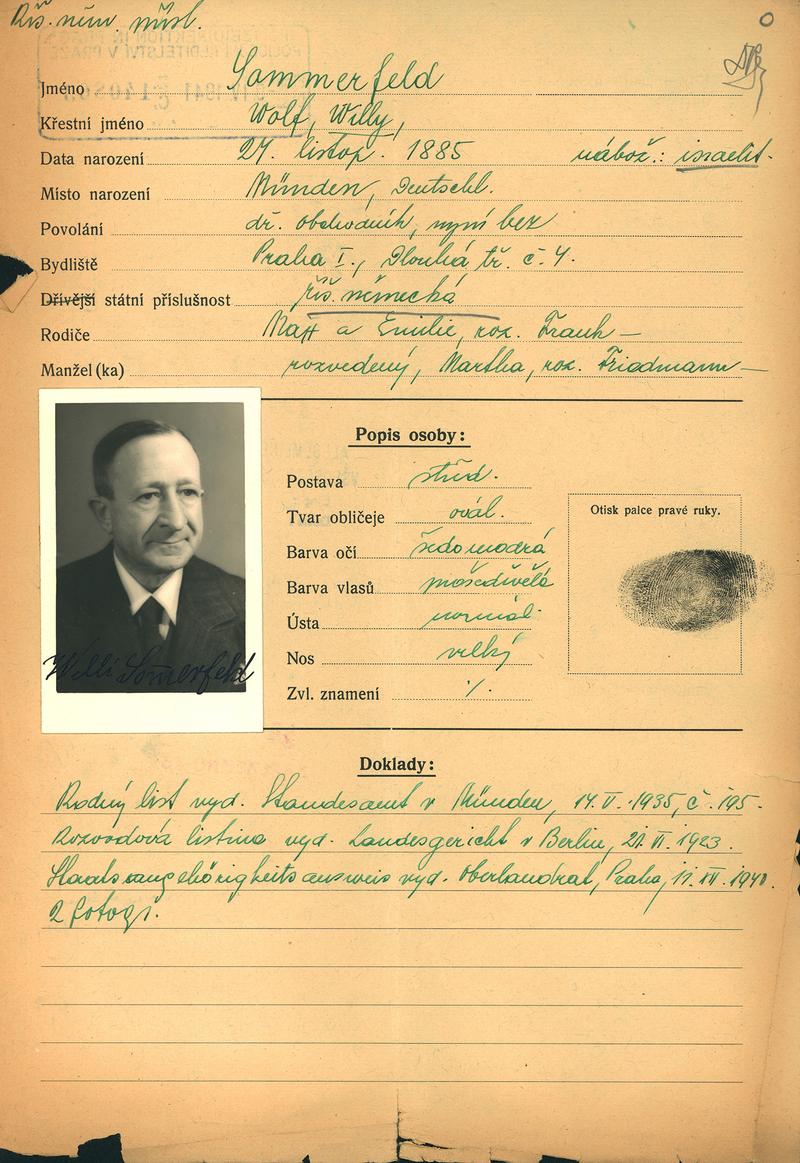 Říš. něm. přísl.
0
Jméno Sommerfeld
Křestní jméno Wolf, Willy,
Data narození 27. listop. 1885 nábož.: israelit.
Místo narození Münden, Deutschl.
Povolání obchodník, nyní bez
Bydliště Praha I., Dlouhá tř. č. 4.
Dřívější státní příslušnost říš. německá
Rodiče a Emilie, roz. Frank —
Manžel (ka) rozvedený, Martha, roz. Friedmann —
Popis osoby:
Postava střed.
Tvar obličeje ovál.
Barva očí šedomodrá
Barva vlasů prošedivělá
Ústa normál.
Nos velký
Zvl. znamení ·/.
Otisk palce pravé ruky.
Willi Somerfeld
Doklady:
Rodný list vyd. Standesamt v Münden, 14. V. 1935, č. 195.
Rozvodová listina vyd. Landesgericht v Berlin, 21. VI. 1923.
Staatsangehörigkeitsausweis vyd. Oberlandrat, Praha, 11. XII. 1940.
2 fotogr.